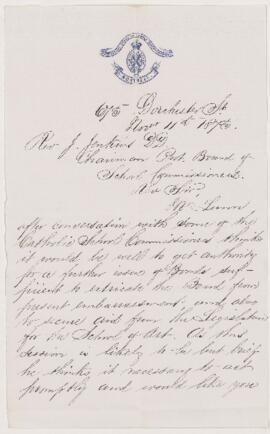 675 Dorchester St.
Novr 11th 1876.
Rev J. Jenkins D.D
Chairman Prot. Board of
School Commissioners
Rev Sir,
Mr Lunn
after conversation with some of the
Catholic School Commissioners thinks
it would be well to get authority
for a further issue of Bonds suf-
ficient to extricate the Board from
present embarrassment, and also
to secure aid from the Legislature
for the School of Art. As this
session is likely to be but brief
he thinks it necessary to act
promptly and would like you